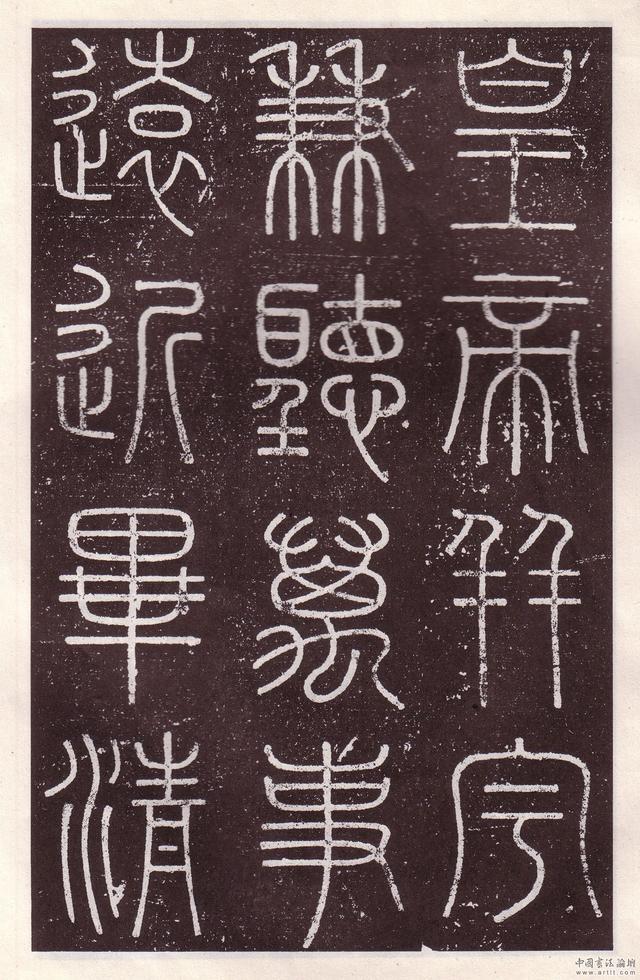 皇帝并宇
兼聽萬事
遠近畢清
中國書法論壇
www.artit.com